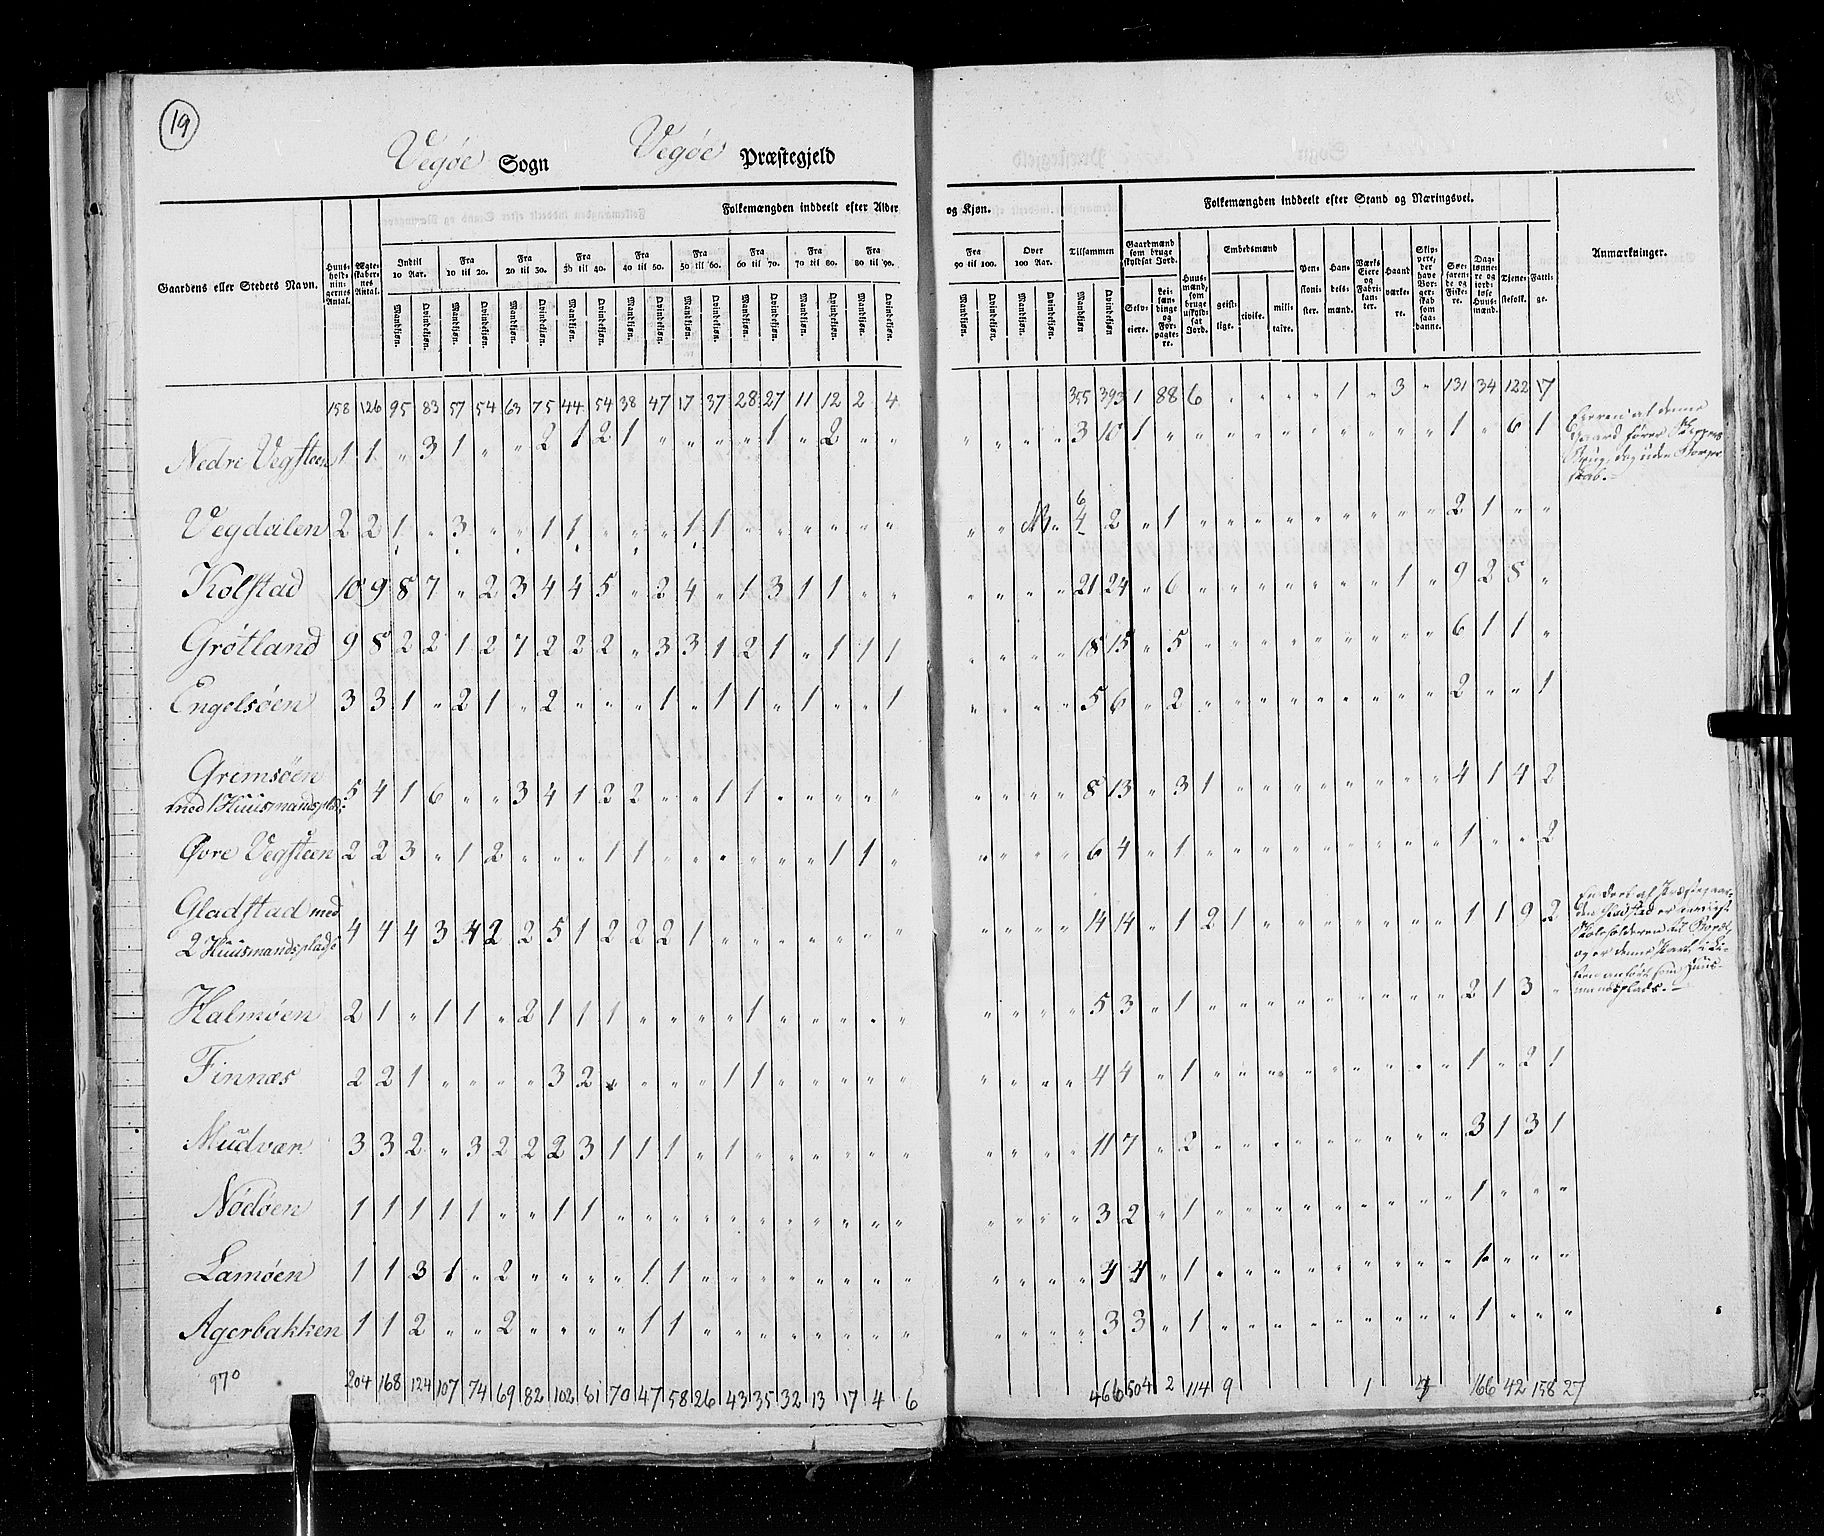 19
Vegøe Sogn Vegøe Præstegjeld
Gaardens eller Stedets Navn.
Huus-holdningernes Antal.
Ægteskabernes Antal.
Folkemængden inddeelt efter Alder og Kjøn.
Indtil 10 Aar. Fra 10 til 20. Fra 20 til 30. Fra 30 til 40. Fra 40 til 50. Fra 50 til 60. Fra 60 til 70. Fra 70 til 80. Fra 80 til 90. Fra 90 til 100. Over 100 Aar. Tilsammen
Mandkjøn. Qvindekjøn.
Folkemængden inddeelt efter Stand og Næringsvei.
Gaardmænd som bruge skyldsat Jord. Selveiere. Leilændinge og Forpagtere.
Huusmænd, som bruge uskyldsat Jord.
Embedsmænd geistlige. civile. militaire.
Pensionister. Handelsmænd. Værks Eiere og Fabrikanter. Haandværkere. Skippere, der have Borgerskab som saadanne. Søefarende og Fiskere. Daglønnere og jordløse Huusmænd. Tjenestefolk. Fattige.
Anmærkninger.
158 126 95 83 57 54 63 75 44 54 38 47 17 37 28 27 11 12 2 4 " " " " 355 393 1 88 6 " " " " 1 " 3 " 131 34 122 17
Nedre Vegsteen 1 1 " 3 1 " " 2 1 2 1 " " " " 1 " 2 " " " " " " 3 10 1 " " " " " " " " " " 1 " 6 1 Eieren af denne Gaard fører Skipper Brug, dog uden Borgerskab.
Vegdalen 2 2 1 " 3 " " 1 1 " " " 1 1 " " " " " " " " NB " 6 4 2 " 1 " " " " " " " " " 2 1 " "
Kolstad 10 9 8 7 " 2 3 4 4 5 " 2 4 " 1 3 1 1 " " " " " " 21 24 " 6 " " " " " " " 1 " 9 2 8 "
Grøtland 9 8 2 2 1 2 7 2 2 2 " 3 3 1 2 1 " 1 1 1 " " " " 18 15 " 5 " " " " " " " " " 6 1 1 "
Engelsøen 3 3 1 " 2 1 " 2 " " " 1 " 1 1 " 1 " " 1 " " " " 5 6 " 2 " " " " " " " " " 2 " " 1
Gremsøen
med 1 Huusmandsplads 5 4 1 6 " " 3 4 1 2 2 " " 1 1 " " " " " " " " " 8 13 " 3 1 " " " " " " " " 4 1 4 2
Øvre Vegsteen 2 2 3 " 1 2 " " " 1 1 " " " " " " 1 1 " " " " " 6 4 " 1 " " " " " " " " " 1 " " 2
Gladstad med
2 Huusmandsplads 4 4 4 3 4 2 2 5 1 2 2 2 1 " " " " " " " " " " " 14 14 " 1 2 1 " " " " " " " 1 1 9 2
Halmøen 2 1 " 1 1 " 2 1 1 1 " " " " 1 " " " " " " " " " 5 3 " 1 " " " " " " " " " 2 1 3 "
Finnæs 2 2 1 " " " " 3 2 " " " " 1 1 " " " " " " " " " 4 4 " 1 " " " " " " " " " 1 " 2 1
Mudvær 3 3 2 " 3 2 2 2 3 1 1 1 " 1 " " " " " " " " " " 11 7 " 2 " " " " " " " " " 3 1 3 1
Nødøen 1 1 1 1 1 " " 1 1 " " " " " " " " " " " " " " " 3 2 " 1 " " " " " " " " " 1 " " "
Lamøen 1 1 3 1 " 2 " " " " 1 1 " " " " " " " " " " " " 4 4 " 1 " " " " " " " " " 1 " " "
Agerbakken 1 1 2 " " 2 " " " " 1 1 " " " " " " " " " " " " 3 3 " 1 " " " " " " " " " 1 " " "
970 204 168 124 107 74 69 82 102 61 70 47 58 26 43 35 32 13 17 4 6 466 504 2 114 9 1 4 166 42 158 27